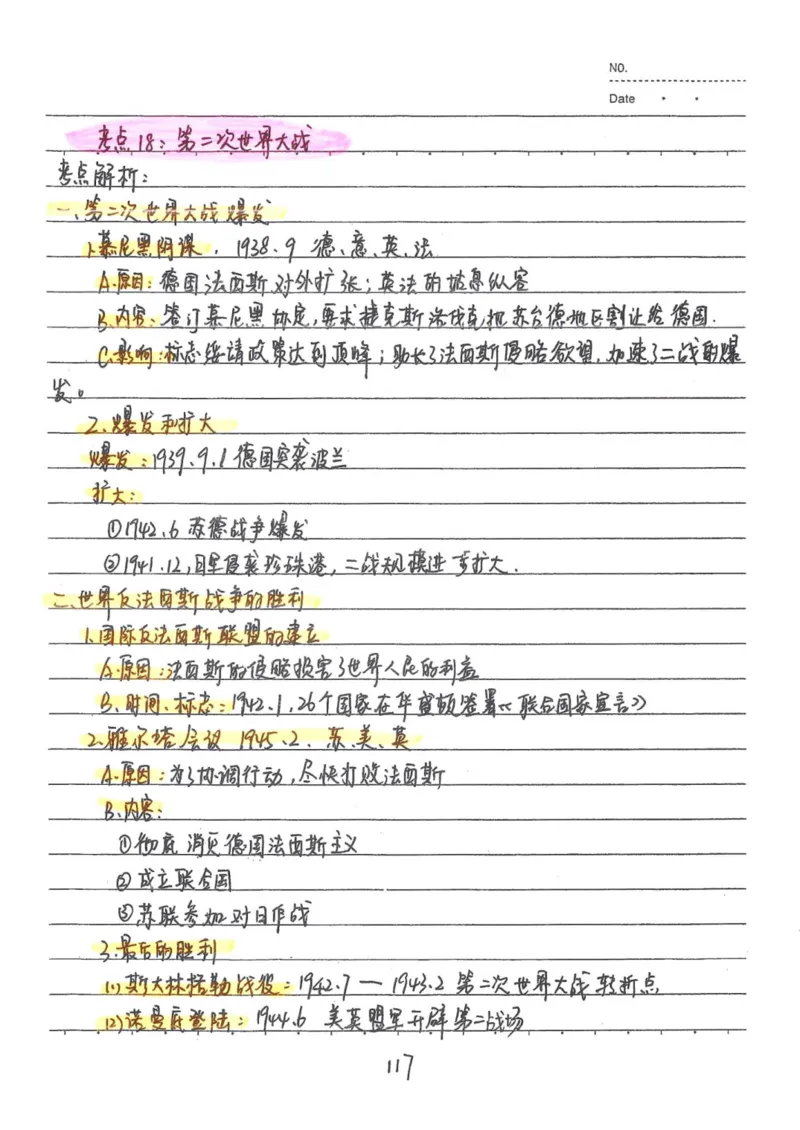 NO.
Date
考点18：第二次世界大战
考点解析：
一、第二次世界大战爆发
1.慕尼黑阴谋，1938.9 德、意、英、法
A.原因：德国法西斯对外扩张；英法的姑息纵容
B.内容：签订慕尼黑协定，要求捷克斯洛伐克把苏台德地区割让给德国.
C.影响：标志绥靖政策达到顶峰；助长了法西斯侵略欲望，加速了二战的爆
发。
2.爆发和扩大
爆发：1939.9.1德国突袭波兰
扩大：
①1942.6 苏德战争爆发
②1941.12，日军偷袭珍珠港，二战规模进一步扩大.
二.世界反法西斯战争的胜利
1.国际反法西斯联盟的建立
A.原因：法西斯的侵略损害了世界人民的利益
B.时间、标志：1942.1，26个国家在华盛顿签署《联合国家宣言》
2.雅尔塔会议 1945.2、苏、美、英
A.原因：为了协调行动，尽快打败法西斯
B.内容：
①彻底消灭德国法西斯主义
②成立联合国
③苏联参加对日作战
3.最后的胜利
(1)斯大林格勒战役：1942.7 — 1943.2 第二次世界大战转折点
(2)诺曼底登陆：1944.6 美英盟军开辟第二战场
117